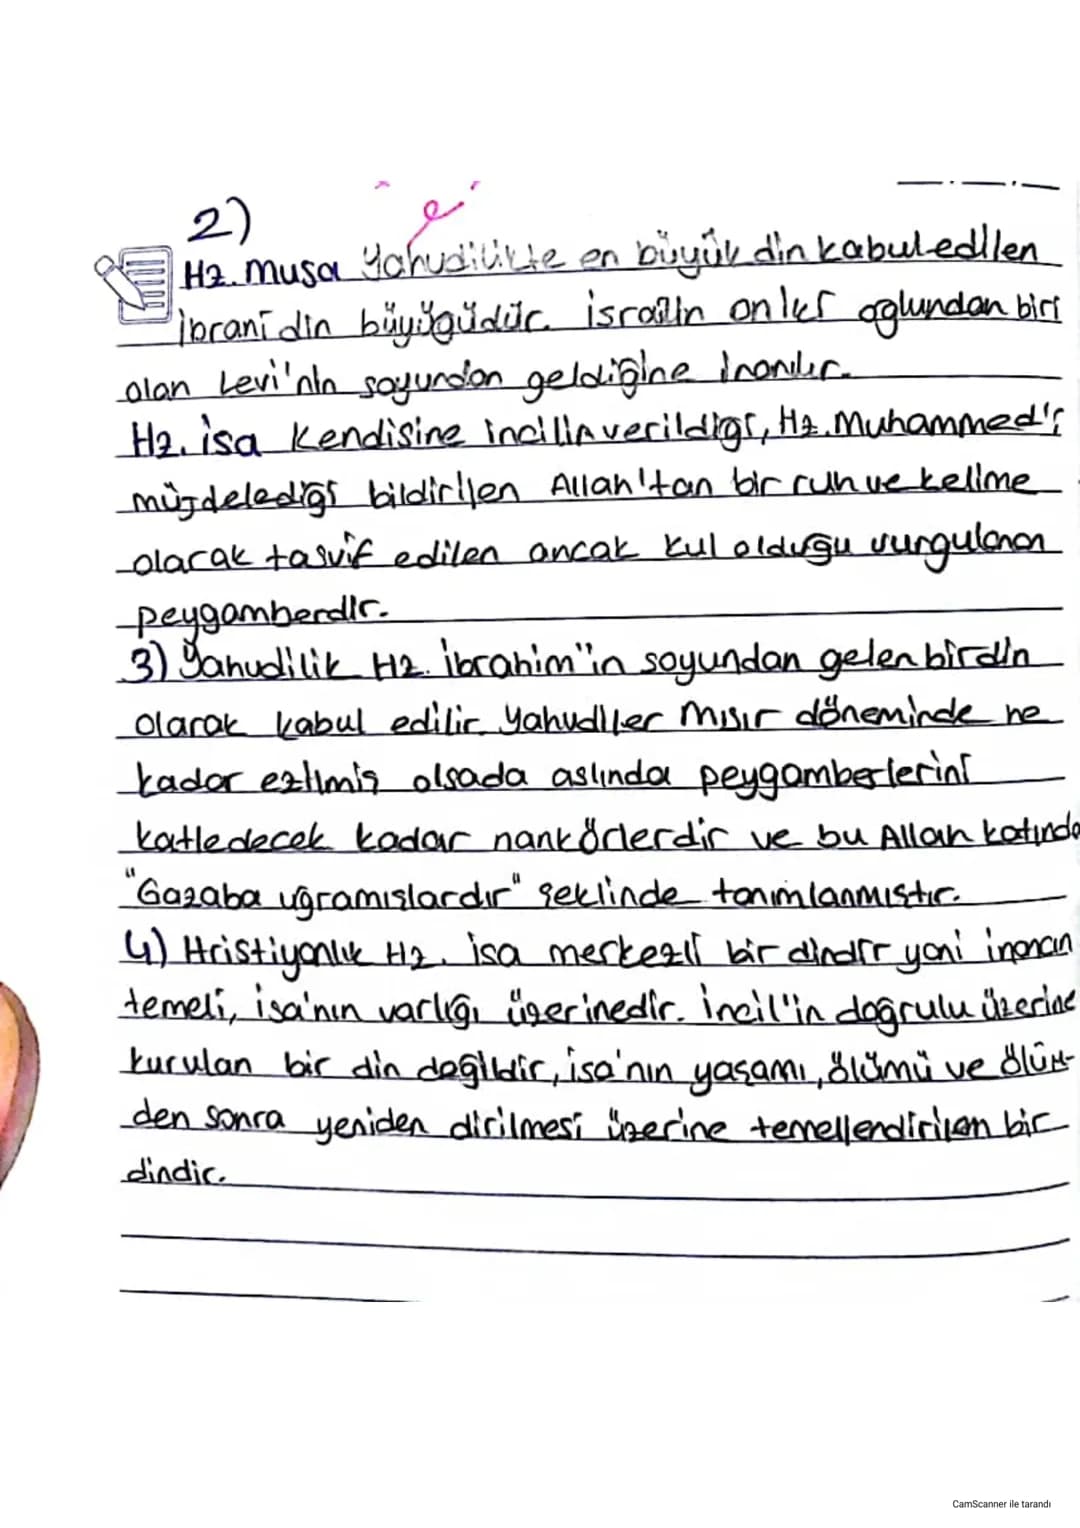 2)
Hz. Musa Yahudilikte en büyük din kabul edilen
İbrani din büyüğüdür. İsrailin oniki oglundan biri
olan Levi'nin soyundan geldiğine inanılır.
Hz. İsa Kendisine incilin verildiği, Hz. Muhammed'i
müjdelediği bildirilen Allah'tan bir ruh ve kelime
olarak tasvif edilen ancak kul olduğu vurgulanan
peygamberdir.
3) Yahudilik Hz. İbrahim"in soyundan gelen bir din
olarak kabul edilir. Yahudiler Mısır döneminde ne
kadar ezilmiş olsada aslında peygamberlerini
katledecek kadar nankörlerdir ve bu Allah katında
"Gazaba uğramışlardır" şeklinde tanımlanmıştır.
4) Hristiyanlık Hz. İsa merkezli bir dindir yani inancın
temeli, isa'nın varlığı üzerinedir. İncil'in doğrulu üzerine
kurulan bir din değildir, isa'nın yaşamı, ölümü ve ölüm-
den sonra yeniden dirilmesi üzerine temellendirilen bir
dindir.
CamScanner ile tarandı